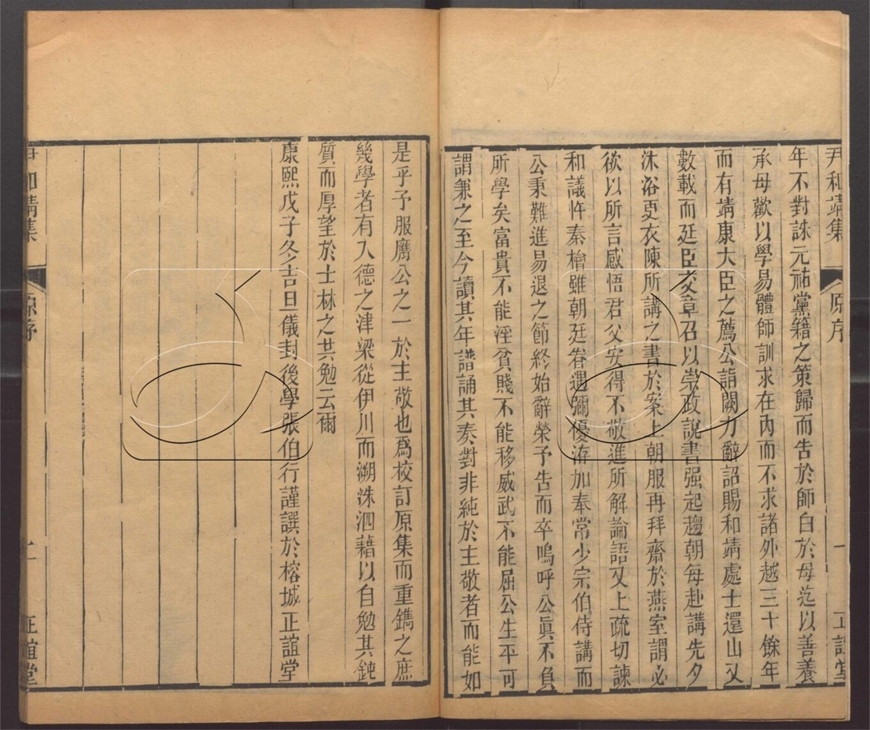 尹和靖集 原序 一 正誼堂
年不對誅元祐黨籍之策歸而告於師白於母迄以善養
承母歡以學易體師訓求在內而不求諸外越三十餘年
而有靖康大臣之薦公詣闕力辭詔賜和靖處士還山又
數載而廷臣交章召以崇政說書强起趨朝每赴講先夕
沐浴更衣陳所講之書於案上朝服再拜齋於燕室謂必
欲以所言感悟君父安得不敬進所解論語又上疏切諫
和議忤秦檜雖朝廷眷遇彌優洊加奉常少宗伯侍講而
公秉難進易退之節終始辭榮予告而卒嗚呼公眞不負
所學矣富貴不能淫貧賤不能移威武不能屈公生平可
謂兼之至今讀其年譜誦其奏對非純於主敬者而能如
是乎予服膺公之一於主敬也爲校訂原集而重鐫之庶
幾學者有入德之津梁從伊川而溯洙泗藉以自勉其鈍
質而厚望於士林之共勉云爾
康熙戊子冬吉旦儀封後學張伯行謹譔於榕城正誼堂
尹和靖集 原序 二 正誼堂